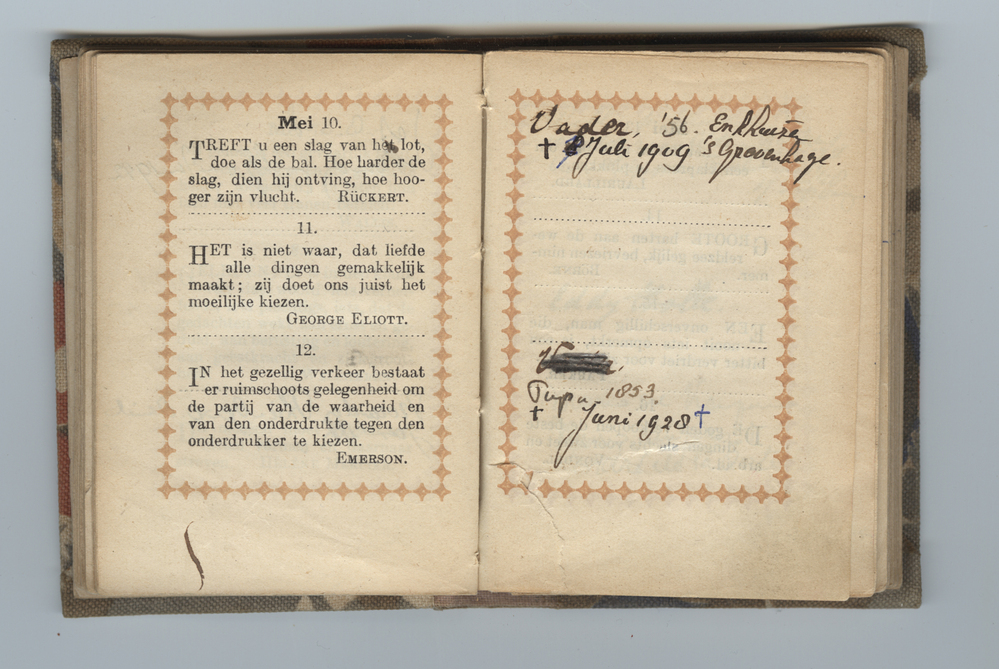 Mei 10.
TREFT u een slag van het lot,
doe als de bal. Hoe harder de
slag, dien hij ontving, hoe hoo-
ger zijn vlucht. RÜCKERT.
11.
HET is niet waar, dat liefde
alle dingen gemakkelijk
maakt; zij doet ons juist het
moeilijke kiezen.
GEORGE ELIOTT.
12.
IN het gezellig verkeer bestaat
er ruimschoots gelegenheid om
de partij van de waarheid en
van den onderdrukte tegen den
onderdrukker te kiezen.
EMERSON.
Vader, '56. Enkhuizen
† Juli 1909 's Gravenhage.
Papa 1853.
† Juni 1928 †